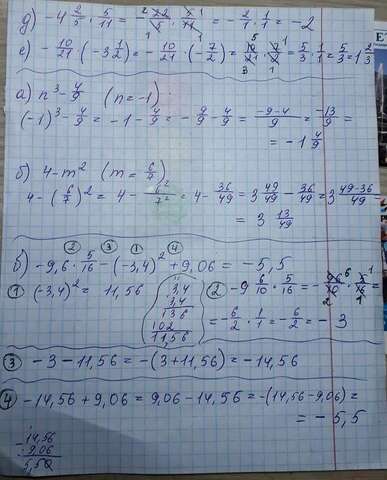 д) -4 2/5 · 5/11 = - 22/5 · 5/11 = - 2/1 · 1/1 = -2
е) - 10/21 · (-3 1/2) = - 10/21 · (- 7/2) = 10/21 · 7/2 = 5/3 · 1/1 = 5/3 = 1 2/3
а) n³ - 4/9 (n = -1)
(-1)³ - 4/9 = -1 - 4/9 = - 9/9 - 4/9 = (-9-4)/9 = -13/9 =
= -1 4/9
б) 4 - m² (m = 6/7)
4 - (6/7)² = 4 - 6²/7² = 4 - 36/49 = 3 49/49 - 36/49 = 3 (49-36)/49 =
= 3 13/49
② ③ ① ④
в) -9,6 · 5/16 - (-3,4)² + 9,06 = -5,5
① (-3,4)² = 11,56
3,4
3,4
136
102
11,56
② -9 6/10 · 5/16 = - 96/10 · 5/16 =
= - 6/2 · 1/1 = - 6/2 = -3
③ -3 - 11,56 = -(3 + 11,56) = -14,56
④ -14,56 + 9,06 = 9,06 - 14,56 = -(14,56 - 9,06) =
= -5,5
-14,56
9,06
5,50